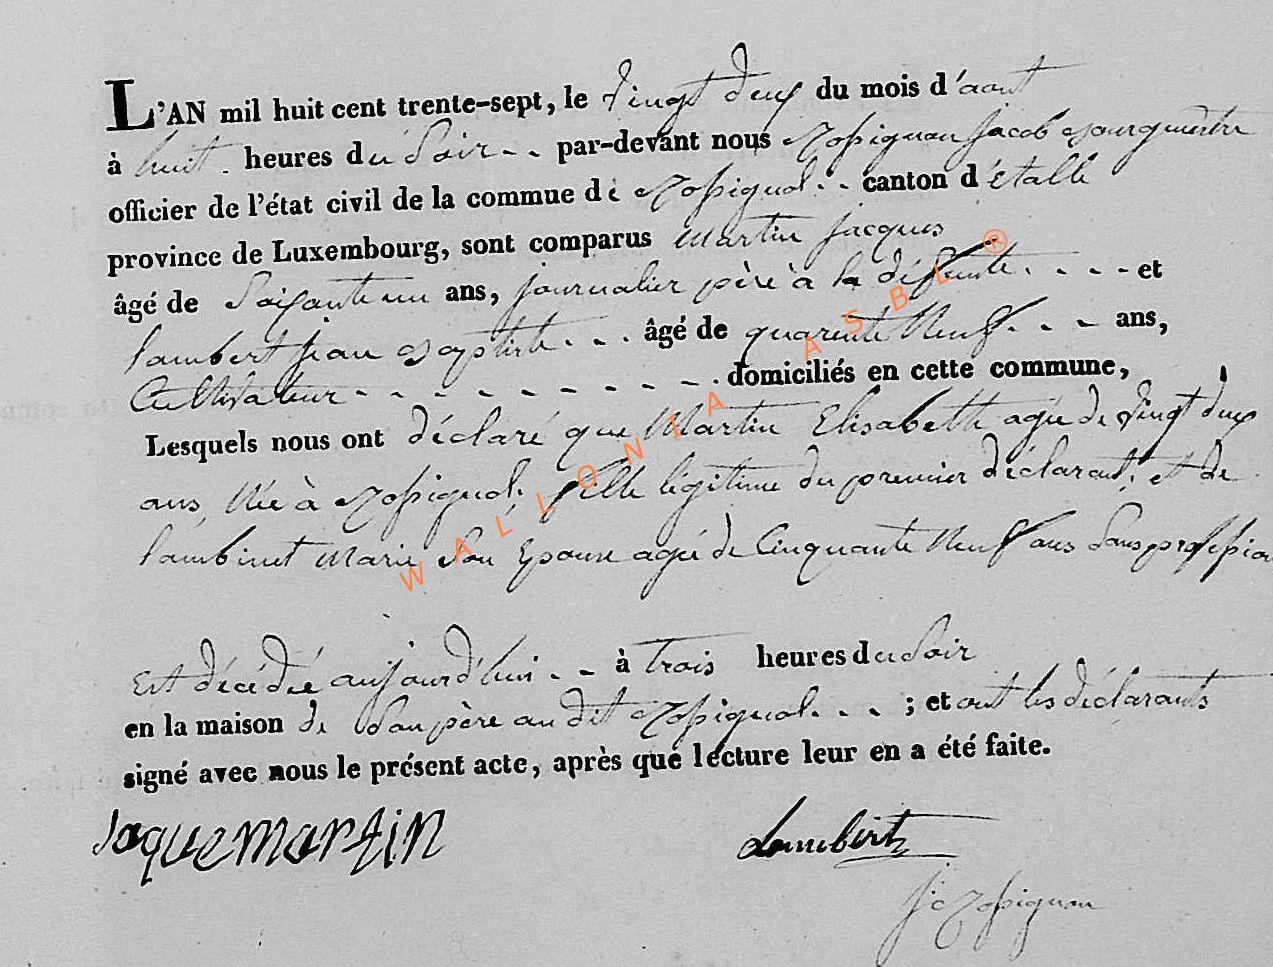 L'AN mil huit cent trente-sept, le vingt deux du mois d'aout
à huit . heures du Soir - - par-devant nous Rossignon Jacob Bourgmestre
officier de l'état civil de la commue de Rossignol. - - canton d'étalle
province de Luxembourg, sont comparus Martin Jacques
âgé de Soixante un ans, journalier père à la défunte. - - - - et
lambert jean Baptiste. - - . âgé de quarente Neuf. - - - ans,
Cultivateur - - - - - - - - - - . domiciliés en cette commune,
Lesquels nous ont déclaré que Martin Elisabeth agée de vingt deux
ans, Née à Rossignol, fille légitime du premier déclarant, et de
lambinet Marie Son Epouse agée de Cinquante Neuf ans Sans profession
Est décédée aujourd'hui - - à trois heures du Soir
en la maison de Son père au dit Rossignol. - - - ; et ont les déclarants
signé avec nous le présent acte, après que lecture leur en a été faite.
Jaque martin Lambert
J. Rossignon
WALLONIA ASBL ®